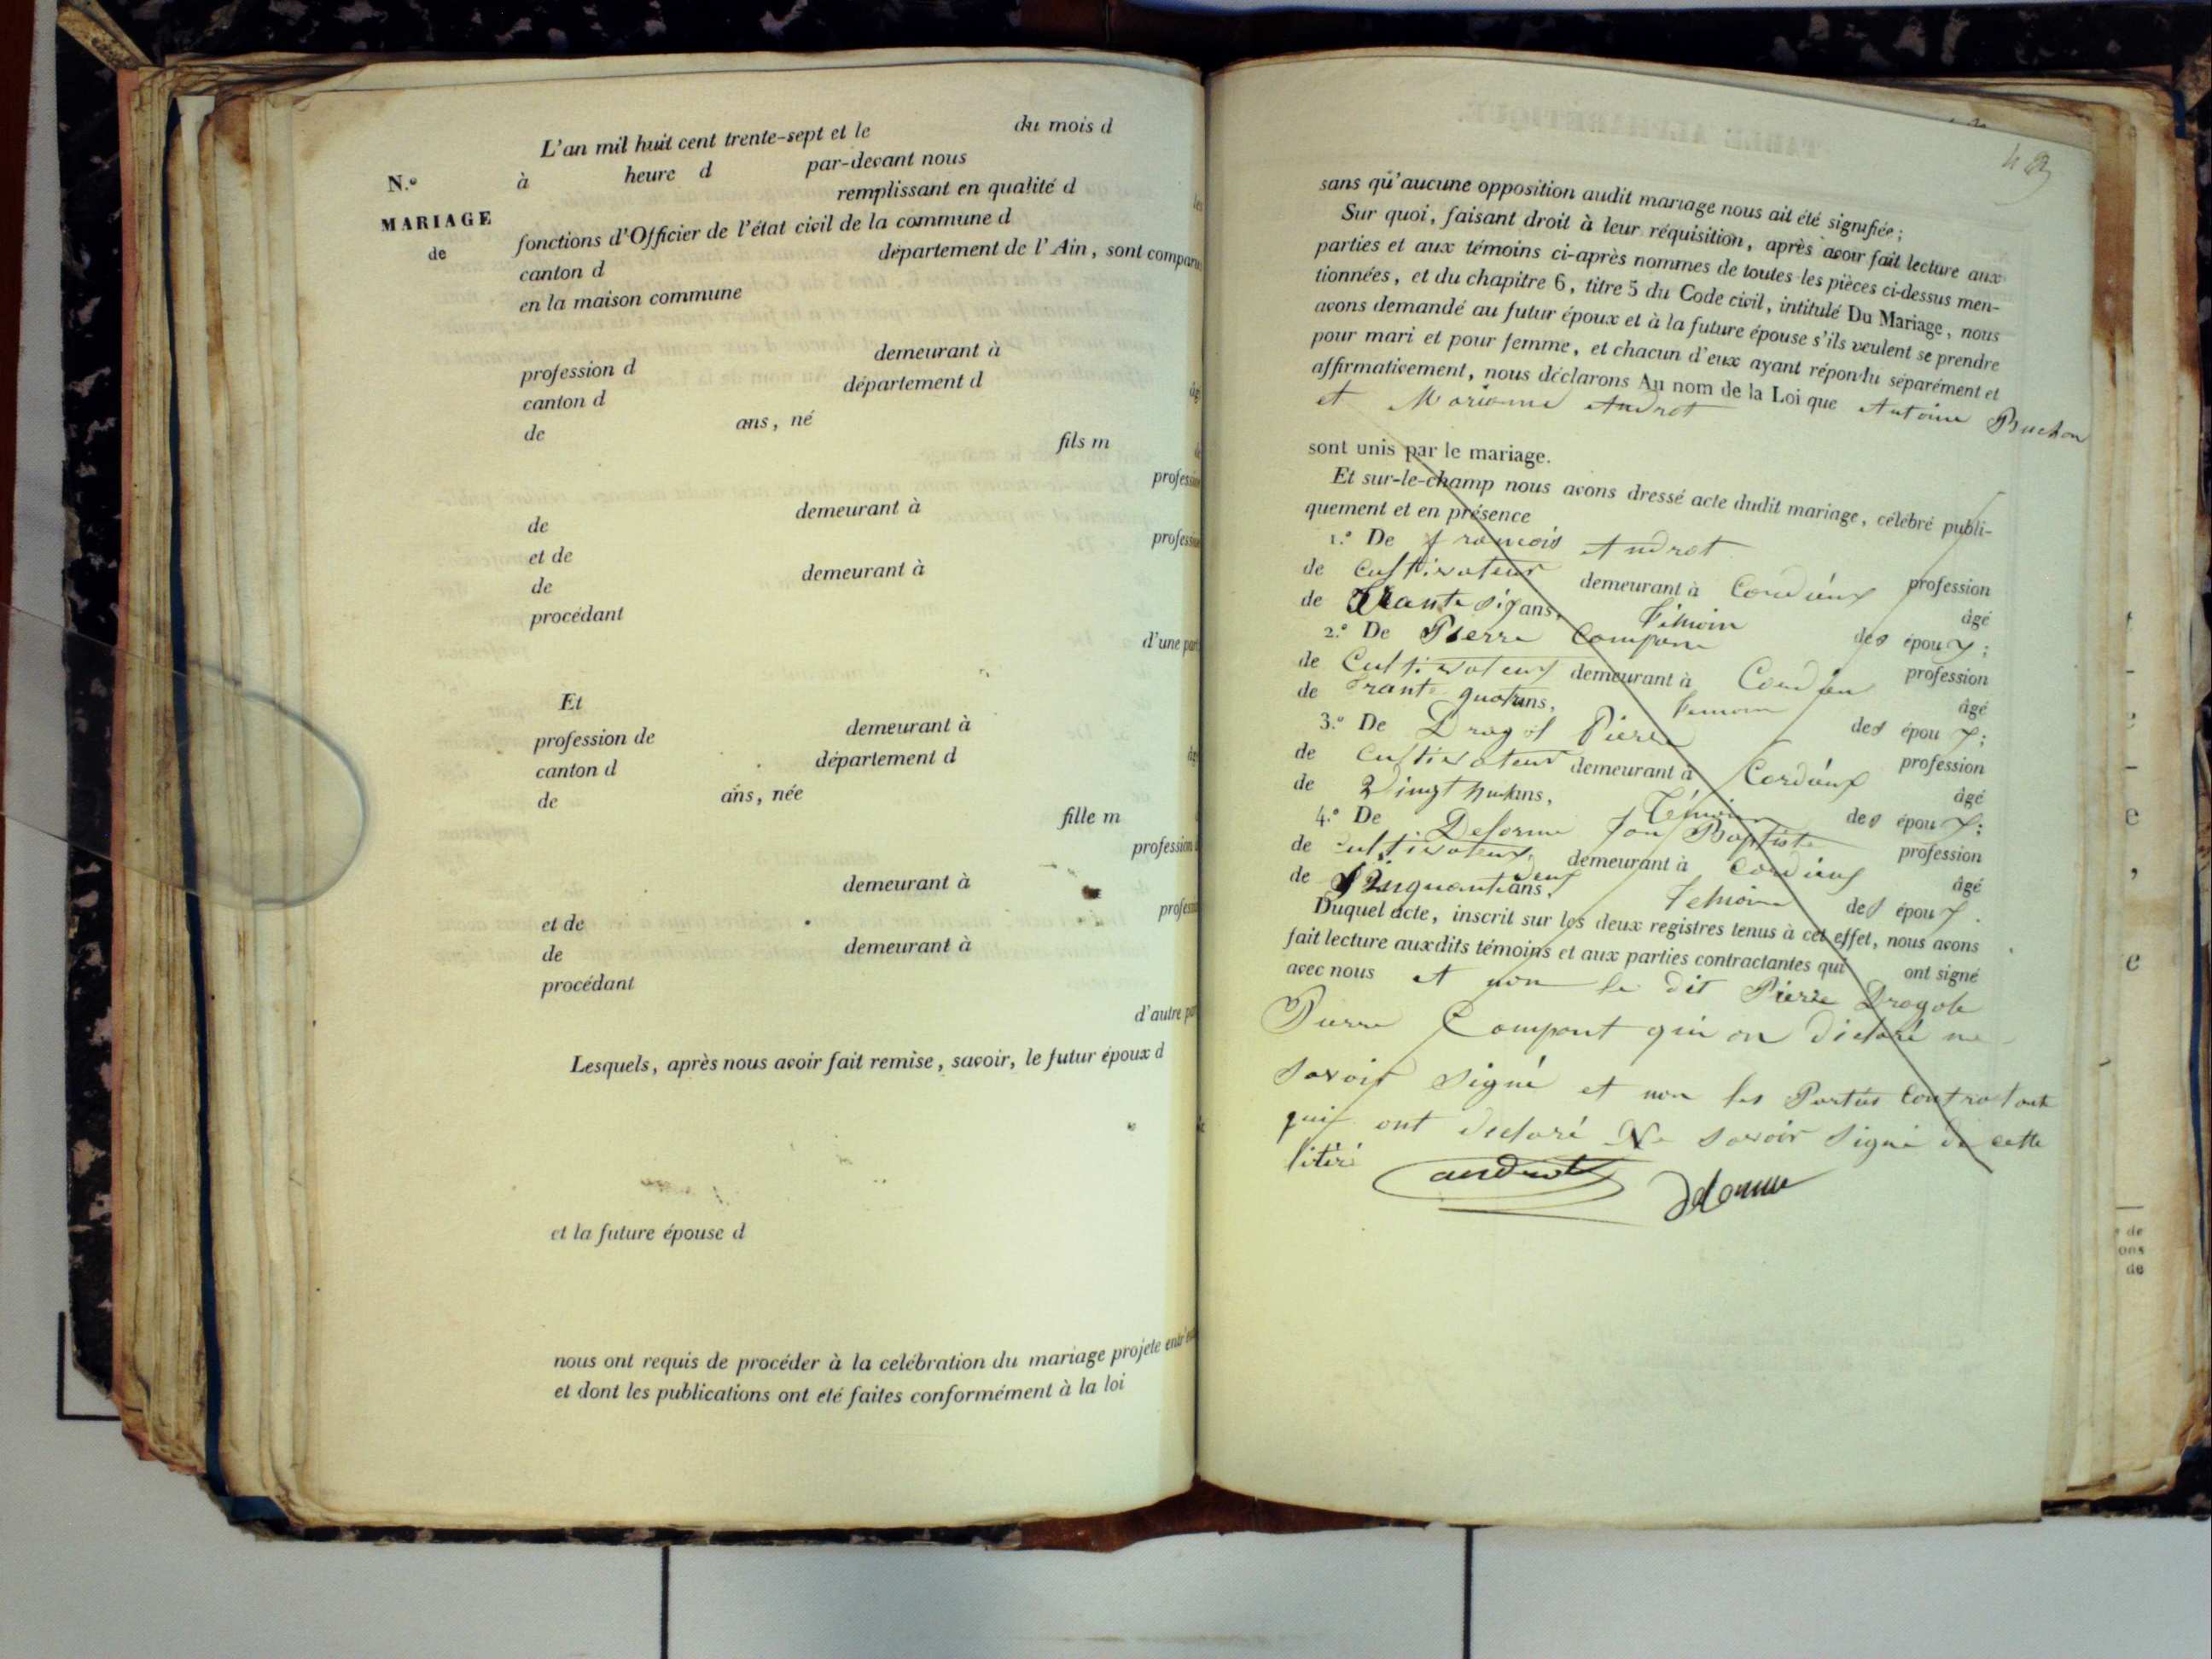 L'an mil huit cent trente-sept et le du mois d
N.° à heure d par-devant nous
remplissant en qualité d
MARIAGE
de
fonctions d'Officier de l'état civil de la commune d
canton d département de l'Ain, sont comparus
en la maison commune
profession d demeurant à
canton d département d
de ans, né
fils m
profession
de demeurant à
et de profession
de demeurant à
procédant
d'une part
Et
profession de demeurant à
canton d département d
de ans, née
fille m
profession
demeurant à
et de
de demeurant à
procédant
d'autre
Lesquels, après nous avoir fait remise, savoir, le futur époux d
et la future épouse d
nous ont requis de procéder à la celébration du mariage projeté
et dont les publications ont été faites conformément à la loi
sans qu'aucune opposition audit mariage nous ait été signifiée;
Sur quoi, faisant droit à leur réquisition, après avoir fait lecture aux
parties et aux témoins ci-après nommes de toutes les pièces ci-dessus men-
tionnées, et du chapitre 6, titre 5 du Code civil, intitulé Du Mariage, nous
avons demandé au futur époux et à la future épouse s'ils veulent se prendre
pour mari et pour femme, et chacun d'eux ayant répondu séparément et
affirmativement, nous déclarons Au nom de la Loi que Antoine Buchon
et Marianne Androt
sont unis par le mariage.
Et sur-le-champ nous avons dressé acte dudit mariage, célébré publi-
quement et en présence
1.° De francois Androt profession
de Cultivateur demeurant à Cordieux âgé
de Trante six ans, Témoin des époux;
2.° De Pierre Compan profession
de Cultivateur demeurant à Cordieu âgé
de Trante quatrans, Temoin des époux;
3.° De Dragol Pierre profession
de Cultivateur demeurant à Cordieux âgé
de Vingt huitans, Témoin des époux;
4.° De Delorme Jean Baptiste profession
de cultivateur, demeurant à Cordieux âgé
de Cinquante deux ans, Temoin des époux.
Duquel acte, inscrit sur les deux registres tenus à cet effet, nous avons
fait lecture auxdits témoins et aux parties contractantes qui ont signé
avec nous et non le dit Pierre Dragole
Pierre Compant qui on déclaré ne
savoir signé et non les Parties Contractant
qui ont declaré Ne savoir signé de cette
androt Delorme